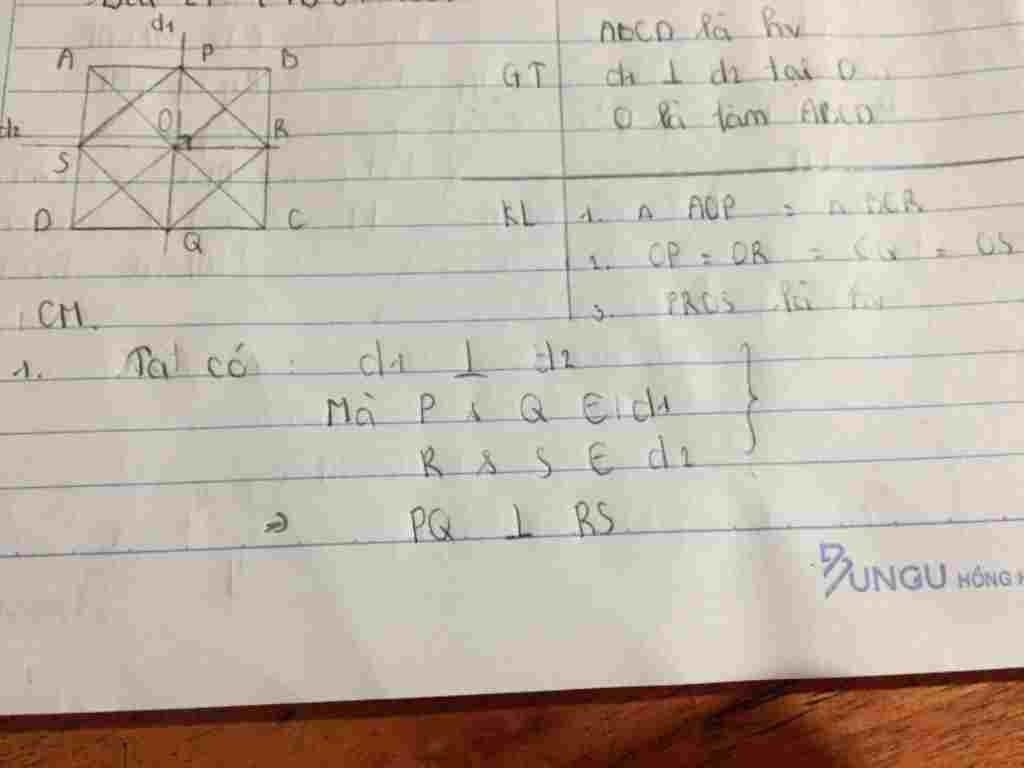 d1
A P B
d2 O R
S
D Q C
ABCD là hv
GT d1 ⊥ d2 tại O
O là tâm ABCD
KL 1. Δ AOP = Δ BOR
2. OP = OR = OQ = OS
3. PRQS là hv
CM.
1. Ta có : d1 ⊥ d2
Mà P & Q ∈ d1
R & S ∈ d2
⇒ PQ ⊥ RS
BUNGU HỒNG